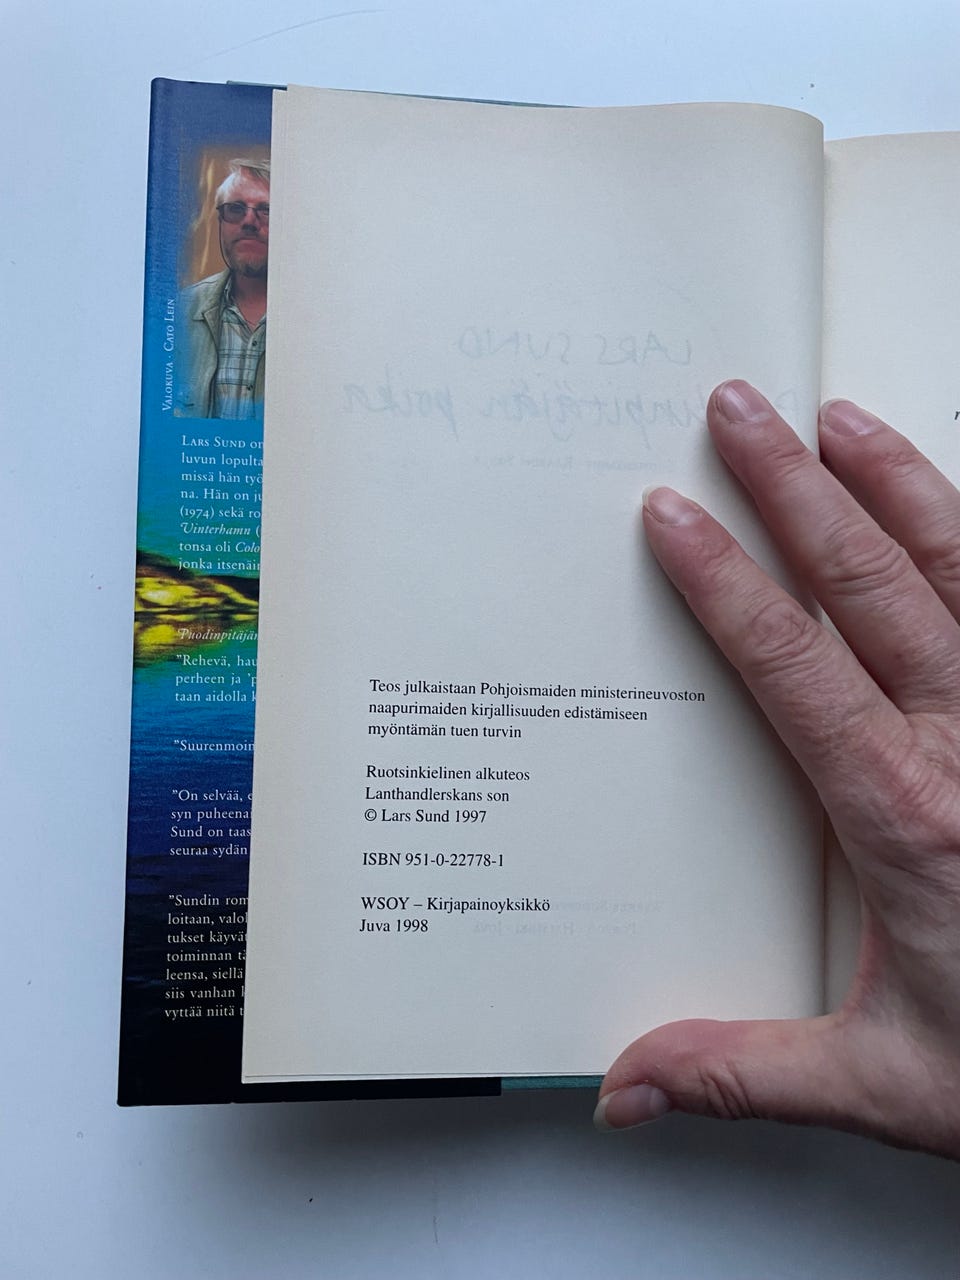 VALOKUVA · CATO LEIN
LARS SUND on
luvun lopulta
missä hän työ
na. Hän on ju
(1974) sekä ro
Vinterhamn (
tonsa oli Colo
jonka itsenäin
Puodinpitäjän
"Rehevä, hau
perheen ja 'p
taan aidolla k
"Suurenmoin
"On selvää, e
syn puheena
Sund on taas
seuraa sydän
"Sundin rom
loitaan, valo
tukset käyvät
toiminnan tä
leensa, siellä
siis vanhan k
vyttää niitä t
LARS SUND
poika
Teos julkaistaan Pohjoismaiden ministerineuvoston
naapurimaiden kirjallisuuden edistämiseen
myöntämän tuen turvin
Ruotsinkielinen alkuteos
Lanthandlerskans son
© Lars Sund 1997
ISBN 951-0-22778-1
WSOY – Kirjapainoyksikkö
Juva 1998